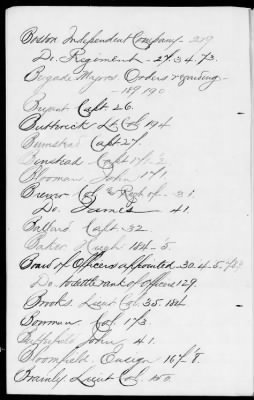 Boston Independent Company - 219
Do. Regiment - 27. 34. 73.
Brigade Majors. Orders regarding -
- 189. 190
Bryant Capt 26.
Butterick Lt Col 194
Bumstead Capt 27.
Binstead Capt 171. 2.
Blooman, John 171.
Brewer Col Rept of - 31.
Do. James 41.
Ballard Capt - 32.
Baker Hugh 184 - 5.
Board of Officers appointed - 30. 4. 5.
Do. to settle rank of Officers 129.
Brooks. Lieut Col. 35. 184
Bowman. Col. 173.
John 41.
Bloomfield. Ensign 167. 8.
Brainly Lieut Col. 150.